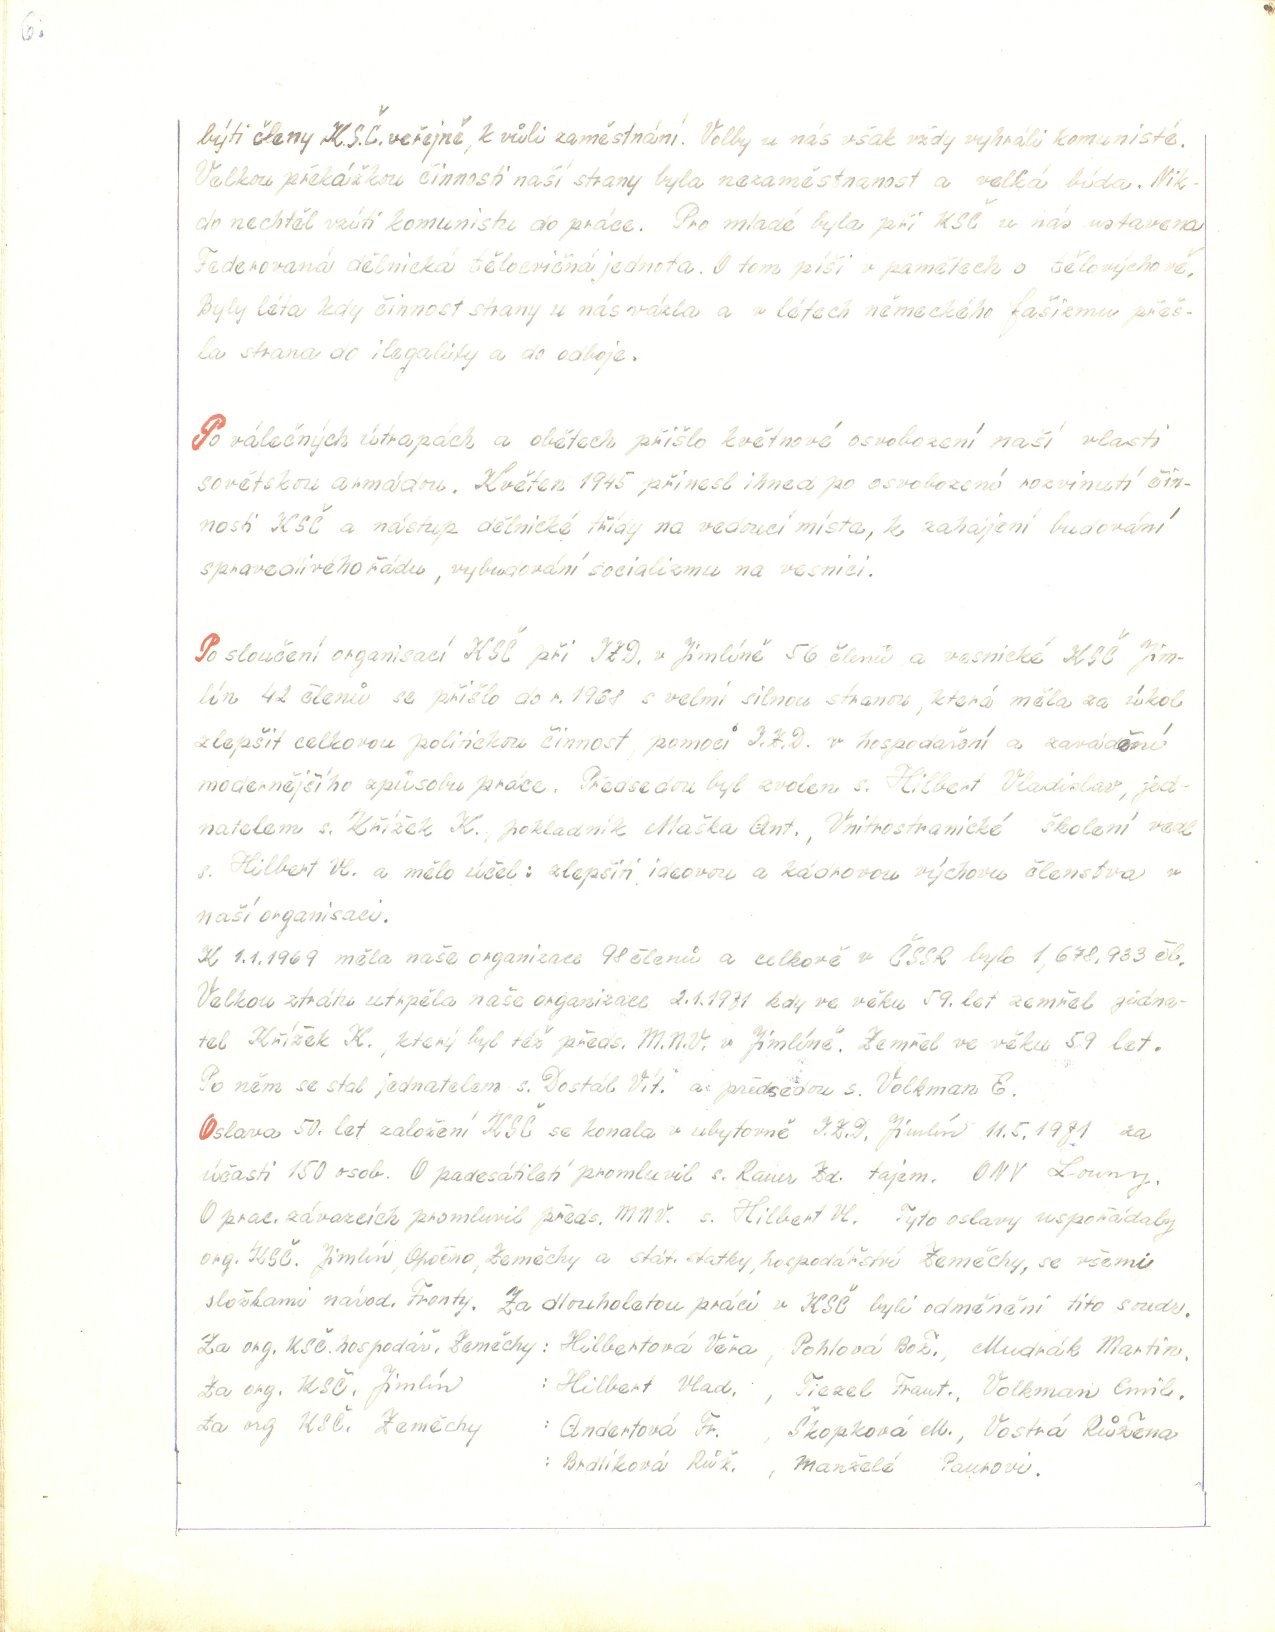 6.
býti členy K.S.Č. veřejně, k vůli zaměstnání. Volby u nás však vždy vyhráli komunisté.
Velkou překážkou činnosti naší strany byla nezaměstnanost a velká bída. Nik-
do nechtěl vzíti komunistu do práce. Pro mladé byla při KSČ u nás ustavena
Federovaná dělnická tělocvičná jednota. O tom píši v pamětech o tělovýchově.
Byly léta kdy činnost strany u nás vázla a v létech německého fašizmu přeš-
la strana do ilegality a do odboje.
Po válečných útrapách a obětech přišlo květnové osvobození naší vlasti
sovětskou armádou. Květen 1945 přinesl ihned po osvobození rozvinutí čin-
nosti KSČ a nástup dělnické třídy na vedoucí místa, k zahájení budování
spravedlivého řádu, vybudování socializmu na vesnici.
Po sloučení organisací KSČ při J.Z.D. v Jimlíně 56 členů a vesnické KSČ Jim-
lín 42 členů se přišlo do r. 1968 s velmi silnou stranou, která měla za úkol
zlepšit celkovou politickou činnost, pomoci J.Z.D. v hospodaření a zavádění
modernějšího způsobu práce. Předsedou byl zvolen s. Hilbert Vladislav, jed-
natelem s. Křížek K., pokladník Maška Ant., Vnitrostranické školení vedl
s. Hilbert Vl. a mělo účel: zlepšiti ideovou a kádrovou výchovu členstva v
naší organisaci.
K 1.1.1969 měla naše organizace 98 členů a celkově v ČSSR bylo 1,678.933 čl.
Velkou ztrátu utrpěla naše organizace 2.1.1971 kdy ve věku 59. let zemřel jedna-
tel Křížek K., který byl též předs. M.N.V. v Jimlíně. Zemřel ve věku 59 let.
Po něm se stal jednatelem s. Dostál Vít. a předsedou s. Volkman E.
Oslava 50. let založení KSČ se konala v ubytovně J.Z.D. Jimlín 11.5.1971 za
účasti 150 osob. O padesátiletí promluvil s. Rauer Zd. tajem. ONV Louny.
O prac. závazcích promluvil předs. MNV. s. Hilbert Vl. Tyto oslavy uspořádaly
org. KSČ. Jimlín, Opočno, Zeměchy a stát. statky, hospodářství Zeměchy, se všemi
složkami národ. Fronty. Za dlouholetou práci v KSČ byli odměněni tito soudr.
Za org. KSČ. hospodář. Zeměchy: Hilbertová Věra, Pohlová Bož., Mudrák Martin.
Za org. KSČ. Jimlín : Hilbert Vlad., Tiezel Frant., Volkman Emil.
Za org KSČ. Zeměchy : Andertová Fr. , Škopková M., Vostrá Růžena
: Brdlíková Růž. , Manželé Paurovi.